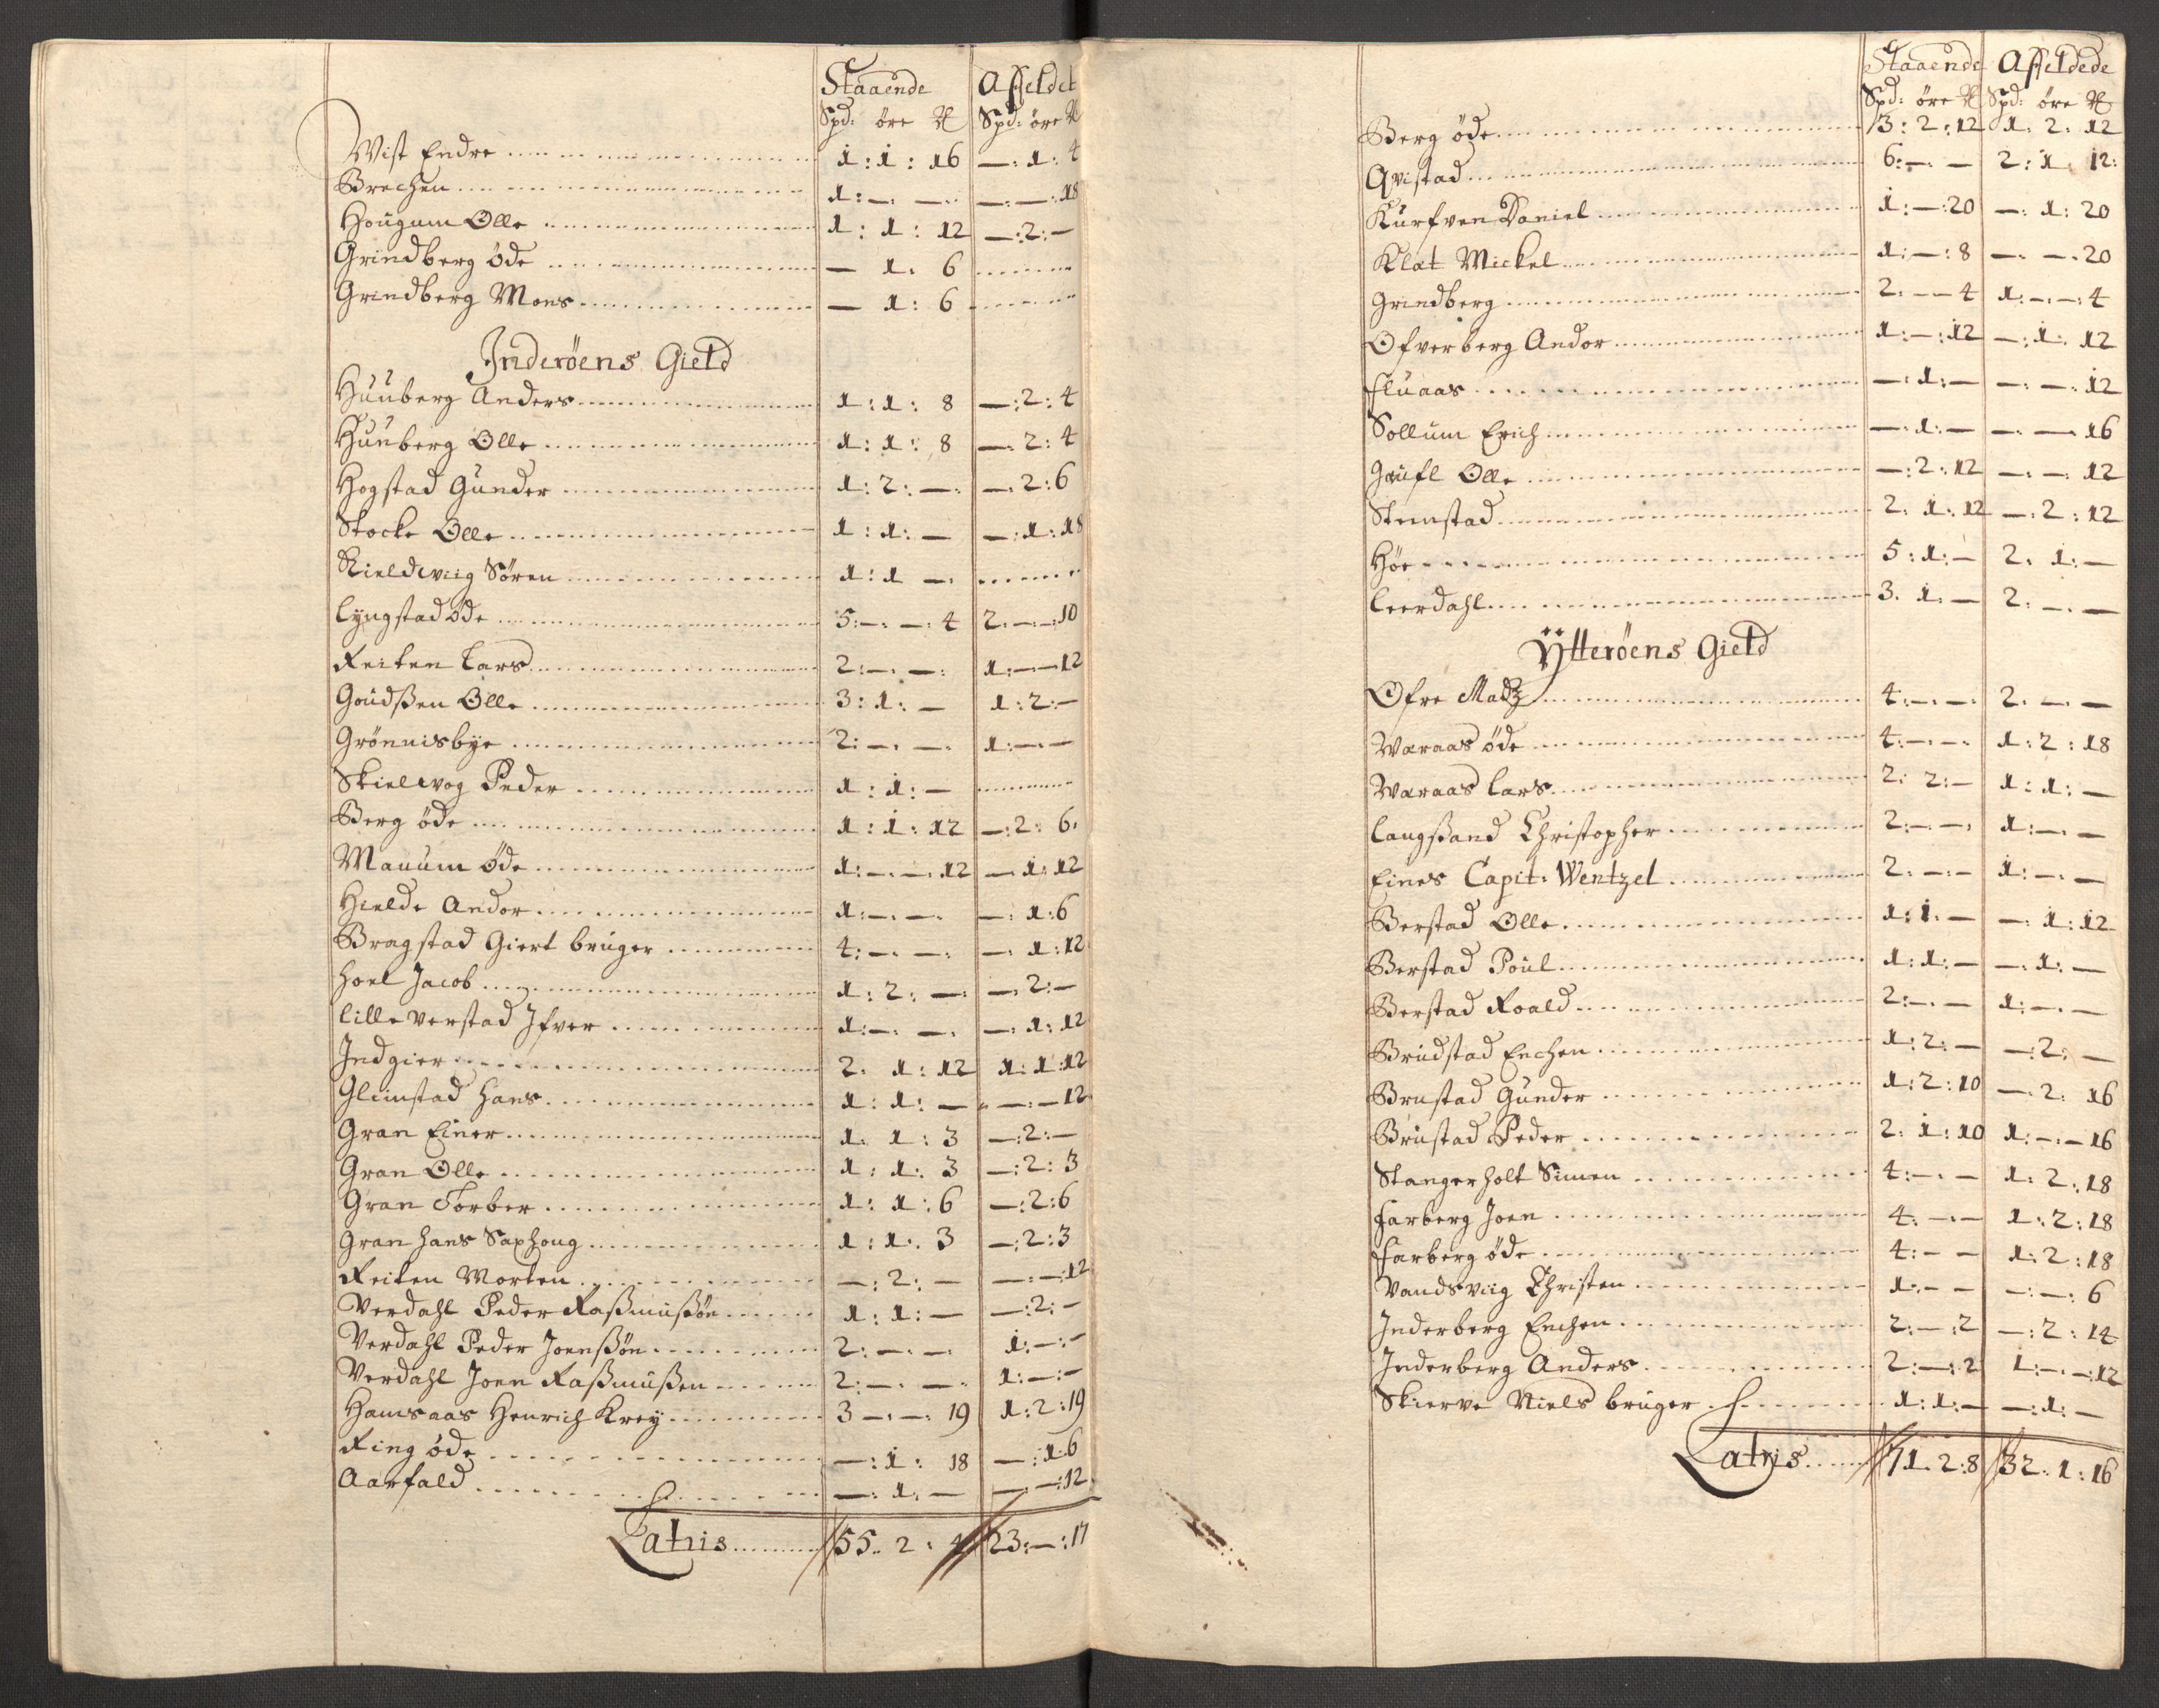 Staaende Affeldet
Spd: öre Spd: öre
Wist Endre 1 : 1 : 16 — : 1 : 4
Brechen 1 : — : — — : — : 18
Hougum Olle 1 : 1 : 12 — : 2 : —
Grindberg öde — 1 : 6
Grindberg Mons — 1 : 6
Inderöens Gield
Huuberg Anders 1 : 1 : 8 — : 2 : 4
Huuberg Olle 1 : 1 : 8 — : 2 : 4
Hogstad Gunder 1 : 2 : — — : 2 : 6
Stocke Olle 1 : 1 : — — : 1 : 18
Kieldwiig Sören 1 : 1 —
Lyngstad öde 5 : — : — : 4 2 : — : — : 10
Reiten Lars 2 : — : — 1 : — : — 12
Goudßen Olle 3 : 1 : — 1 : 2 : —
Grönnisbye 2 : — : — 1 : — : —
Skielwog Peder 1 : 1 : —
Berg öde 1 : 1 : 12 — : 2 : 6
Mauum öde 1 : — : — : 12 — : 1 : 12
Hielde Andor 1 : — : — — : 1 : 6
Bragstad Giert bruger 4 : — : — — : 1 : 12
Hoel Jacob 1 : 2 : — — : 2 : —
Lille verstad Ifver 1 : — : — — : 1 : 12
Indgier 2 : 1 : 12 1 : 1 : 12
Glimstad Hans 1 : 1 : — — : — 12
Gran Einer 1 : 1 : 3 — : 2 : —
Gran Olle 1 : 1 : 3 — : 2 : 3
Gran Torber 1 : 1 : 6 — : 2 : 6
Gran Hans Saxhoug 1 : 1 : 3 — : 2 : 3
Reiten Morten — : 2 : — — : — : 12
Verdahl Peder Raßmußön 1 : 1 : — — : 2 : —
Verdahl Peder Joenßön 2 : — : — 1 : — : —
Verdahl Joen Raßmußen 2 : — : — 1 : — : —
Hamsaas Henrich Krey 3 — : — : 19 1 : 2 : 19
Ring öde — : 1 : 18 — : 1 : 6
Aarfald — : 1 : — — : — : 12
Latris 55 : 2 : 4 23 : — : 17
Staaende Affeldede
Spd: öre Spd: öre
Berg öde 3 : 2 : 12 1 : 2 : 12
Qvistad 6 : — : — 2 : 1 : 12
Kurfven Daniel 1 : — : 20 — : 1 : 20
Klat Mickel 1 : — : 8 — : — : 20
Grindberg 2 : — — 4 1 : — : — : 4
Ofverberg Andor 1 : — : 12 — : 1 : 12
Fluaas — : 1 : — — : — : 12
Sollum Erich — : 1 : — — : — 16
Gaufl Olle — : 2 : 12 — : — : 12
Stemstad 2 : 1 : 12 — : 2 : 12
Höe 5 : 1 : — 2 : 1 : —
Leerdahl 3 : 1 : — 2 : — : —
Ÿtteröens Gield
Øfre Madz 4 : — : — 2 : — : —
Waraas öde 4 : — : — 1 : 2 : 18
Waraas Lars 2 : 2 : — 1 : 1 : —
Langßand Christopher 2 : — : — 1 : — : —
Eines Capit: Wentzel 2 : — : — 1 : — : —
Berstad Olle 1 : 1 : — — : 1 : 12
Berstad Poul 1 : 1 : — — : 1 : —
Berstad Roald 2 : — : — 1 : — : —
Brudstad Enchen 1 : 2 : — — : 2 : —
Brustad Gunder 1 : 2 : 10 — : 2 : 16
Brustad Peder 2 : 1 : 10 1 : — : — 16
Stangerholt Simen 4 : — : — 1 : 2 : 18
Farberg Joen 4 : — : — 1 : 2 : 18
Farberg öde 4 : — — 1 : 2 : 18
Vandsviig Christen 1 : — — — : — : 6
Inderberg Enchen 2 : — : 2 — : 2 : 14
Inderberg Anders 2 : — : 2 1 : — : — : 12
Skierve Niels bruger 1 : 1 : — — : 1 : —
Latris 71 : 2 : 8 32 : 1 : 16